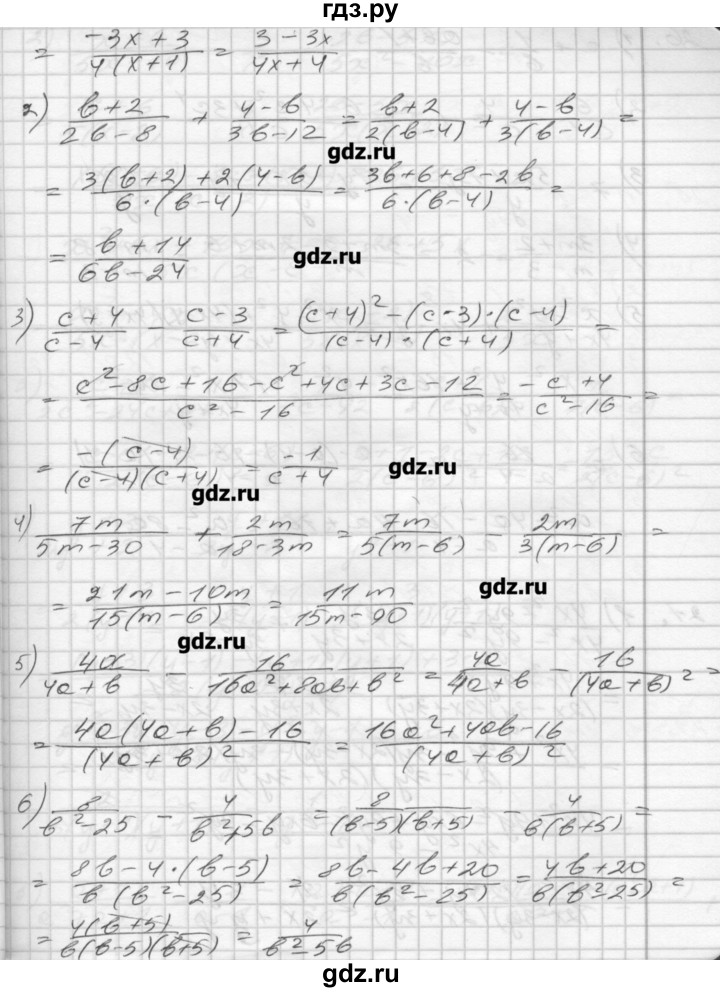 гдз.ру
= (-3x + 3)/(4(x+1)) = (3 - 3x)/(4x + 4)
2) (b+2)/(2b-8) + (4-b)/(3b-12) = (b+2)/(2(b-4)) + (4-b)/(3(b-4)) =
gdz.ru
= (3(b+2)+2(4-b))/(6·(b-4)) = (3b+6+8-2b)/(6·(b-4)) =
= (b+14)/(6b-24)
gdz.ru
3) (c+4)/(c-4) - (c-3)/(c+4) = ((c+4)²-(c-3)·(c-4))/((c-4)·(c+4)) =
= (c²-8c+16-c²+4c+3c-12)/(c²-16) = (-c+4)/(c²-16) =
= (-(c-4))/((c-4)(c+4)) = (-1)/(c+4)
gdz.ru
gdz.ru
4) (7m)/(5m-30) + (2m)/(18-3m) = (7m)/(5(m-6)) - (2m)/(3(m-6)) =
gdz.ru
= (21m-10m)/(15(m-6)) = (11m)/(15m-90)
gdz.ru
5) (4a)/(4a+b) - (16)/(16a²+8ab+b²) = (4a)/(4a+b) - (16)/((4a+b)²) =
= (4a(4a+b)-16)/((4a+b)²) = (16a²+4ab-16)/((4a+b)²)
6) (8)/(b²-25) - (4)/(b²+5b) = (8)/((b-5)(b+5)) - (4)/(b(b+5)) =
= (8b-4·(b-5))/(b(b²-25)) = (8b-4b+20)/(b(b²-25)) = (4b+20)/(b(b²-25)) =
= (4(b+5))/(b(b-5)(b+5)) = (4)/(b²-5b)
gdz.ru